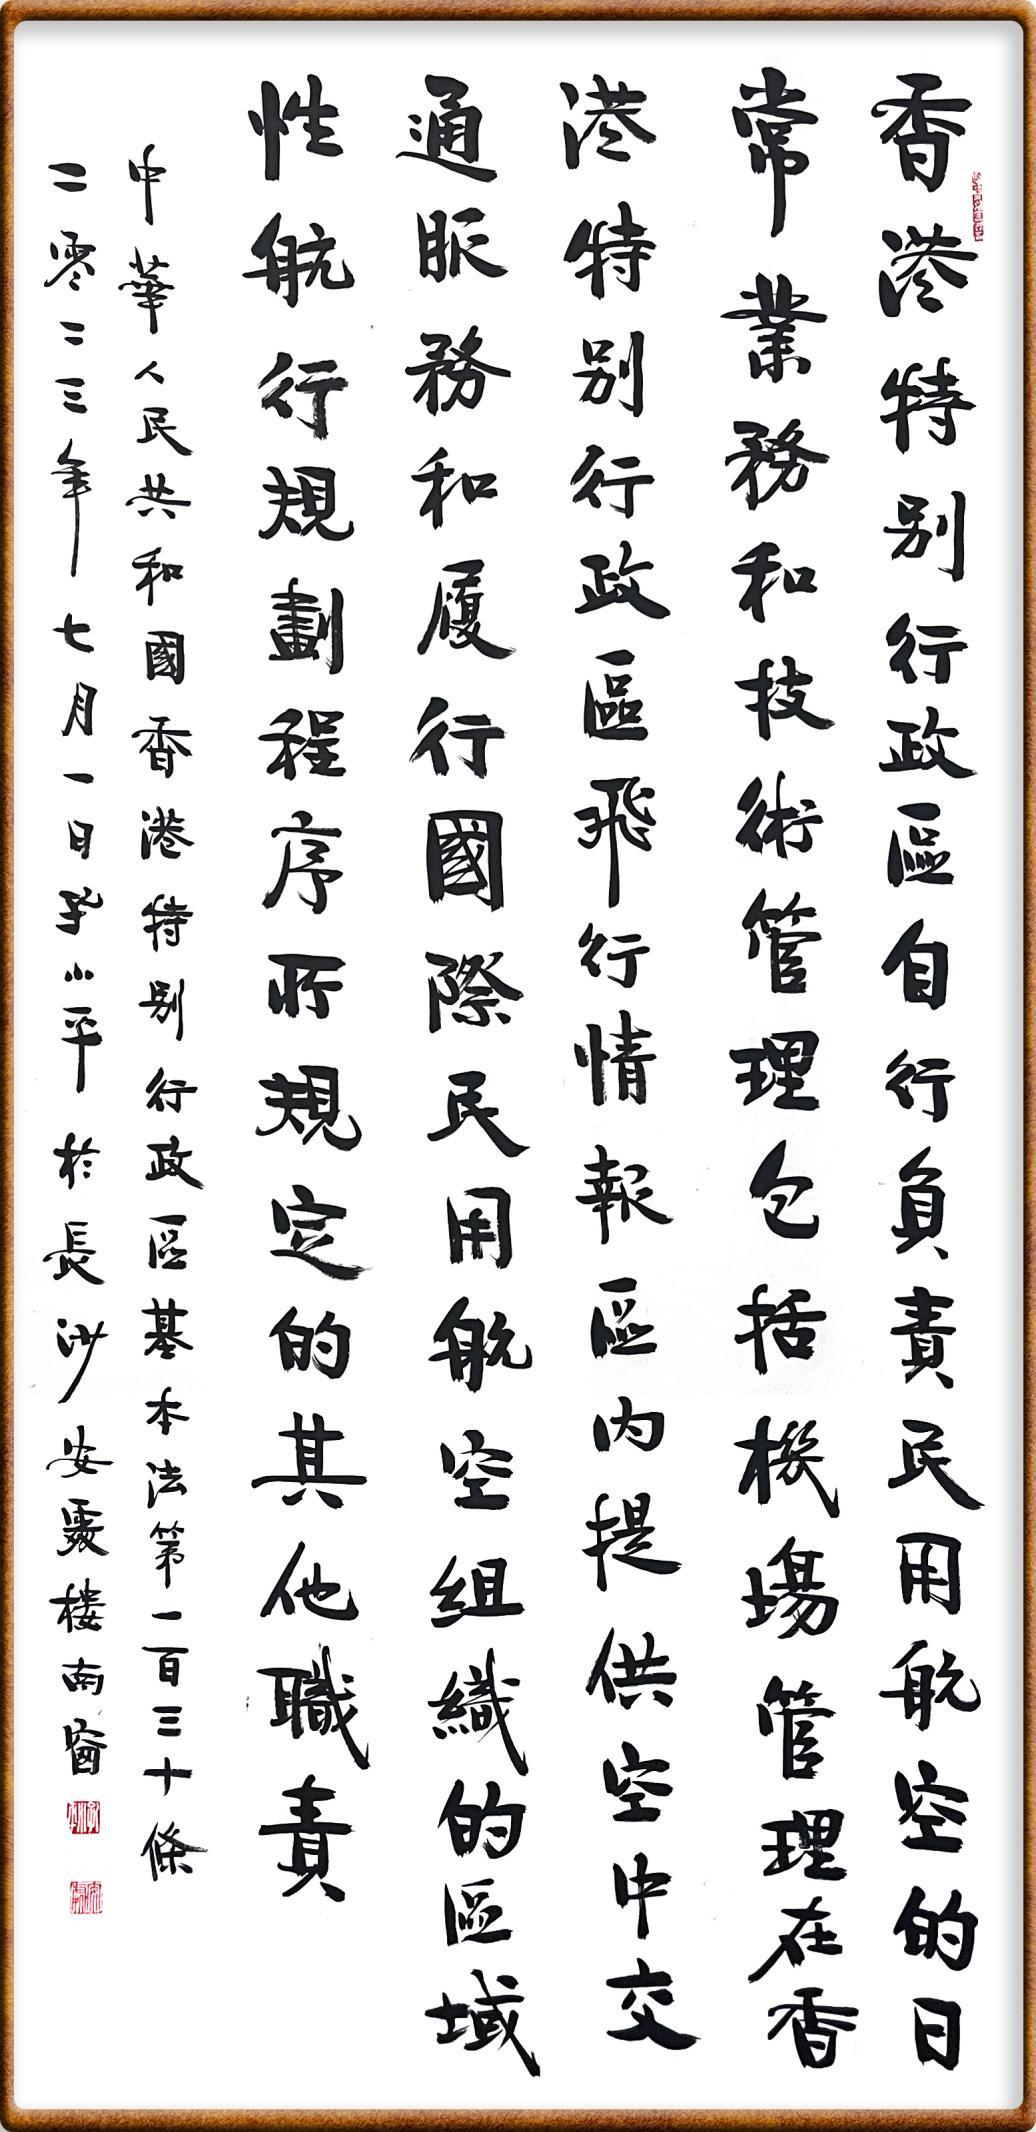 香港特别行政區自行負責民用航空的日
常業務和技術管理包括機場管理在香
港特别行政區飛行情報區内提供空中交
通服務和履行國際民用航空組織的區域
性航行規劃程序所規定的其他職責
中華人民共和國香港特别行政區基本法第一百三十條
二零二三年七月一日小平於長沙安樓南窗